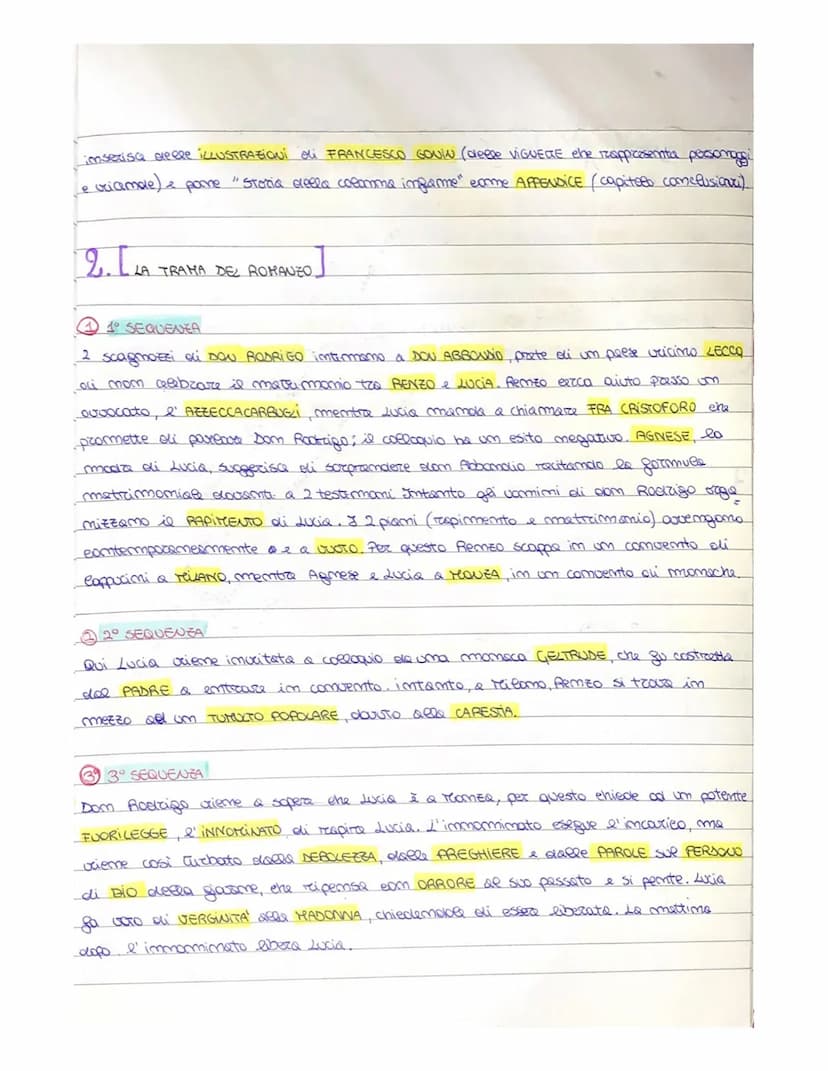 inserisce delle ILLUSTRAZIONI di FRANCESCO GONIN (delle VIGNETTE che rappresenta personaggi
e vicende) e pone "Storia della colonna infame" come APPENDICE (capitolo conclusivi).
2. [LA TRAMA DEL ROMANZO]
1 1° SEQUENZA
2 scagnozzi di DON RODRIGO intimano a DON ABBONDIO, prete di un paese vicino LECCO
di non celebrare il matrimonio tra RENZO e LUCIA. Renzo cerca aiuto presso un
avvocato, l'AZZECCAGARBUGLI, mentre Lucia manda a chiamare FRA CRISTOFORO che
promette di parlare Don Rodrigo; il colloquio ha un esito negativo. AGNESE, la
madre di Lucia, suggerisce di sorprendere don Abbondio recitando la formula
matrimoniale davanti a 2 testimoni. Intanto gli uomini di don Rodrigo orga
nizzano il RAPIMENTO di Lucia. I 2 piani (rapimento e matrimonio) avvengono
contemporaneamente e a VUOTO. Per questo Renzo scappa in un convento di
cappucini a MILANO, mentre Agnese e Lucia a MONZA, in un convento di monache.
2 2° SEQUENZA
Qui Lucia viene invitata a colloquio da una monaca GELTRUDE, che fu costretta
dal PADRE a entrare in convento. intanto, a Milano, Renzo si trova in
mezzo ad un TUMULTO POPOLARE, dovuto alla CARESTIA.
3° 3° SEQUENZA
Don Rodrigo viene a sapere che Lucia è a Monza, per questo chiede ad un potente
FUORILEGGE, l'INNOMINATO, di rapire Lucia. L'innominato esegue l'incarico, ma
viene così turbato dalla DEBOLEZZA, dalle PREGHIERE e dalle PAROLE sul PERDONO
di DIO della giovane, che ripensa con ORRORE al suo passato e si pente. Lucia
fa voto di VERGINITA' alla MADONNA, chiedendole di essere liberata. La mattina
dopo l'innominato libera Lucia.